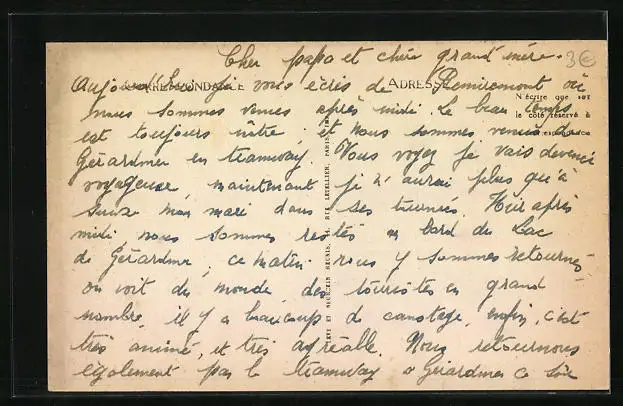 Cher papa et chère grand'mère. 3€
CORRESPONDANCE ADRESSE
Aujourd'hui je vous écris de Remiremont où
N'écrire que sur
le côté réservé à
nous sommes venues après midi. Le beau temps
est toujours nôtre, et nous sommes venus de
Gérardmer en tramway. Vous voyez je vais devenir
voyageuse maintenant je n'aurai plus qu'à
suivre mon mari dans ses tournées. Hier après
midi nous sommes restés au bord du Lac
de Gérardmer, ce matin nous y sommes retournés
on voit du monde, des touristes en grand
nombre, il y a beaucoup de canotage, enfin, c'est
très animé, et très agréable. Nous retournons
également par le tramway a Gérardmer ce soir
RUE LETELLIER, PARIS